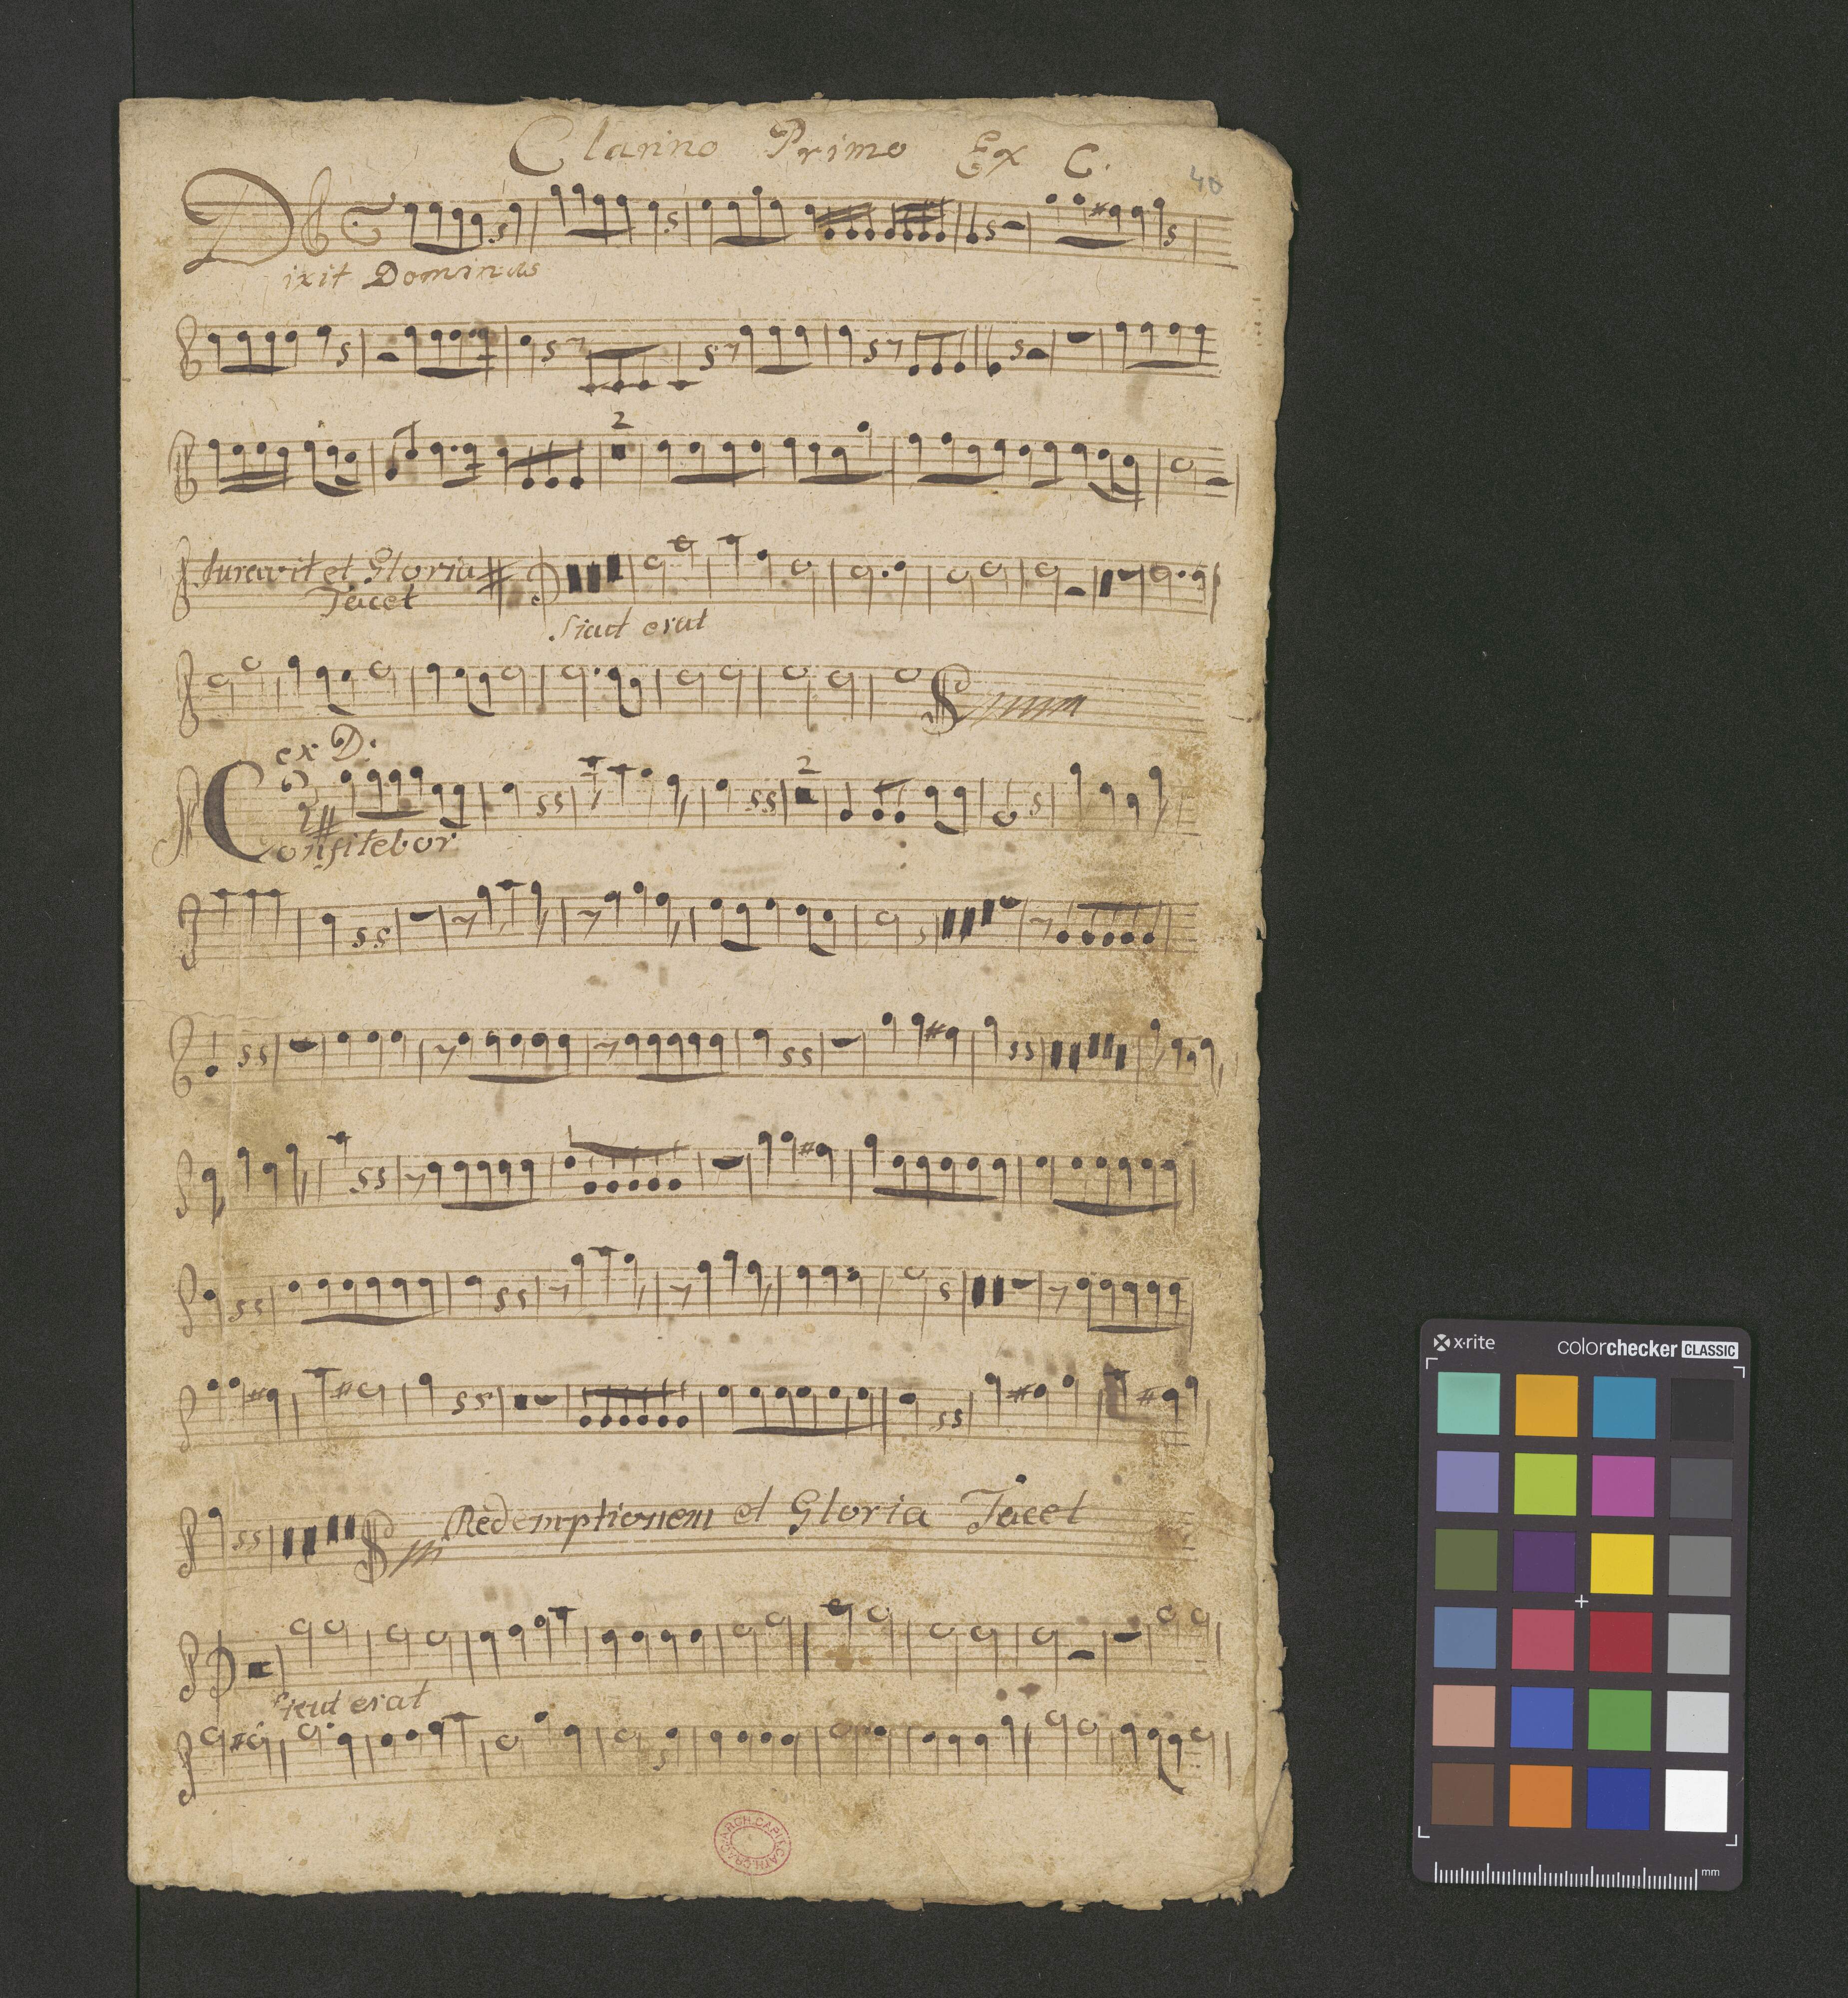 Clarino Primo Ex C.
40
Dixit Dominus
2
Juravit et Gloria
Tacet
Sicut erat
ex D.
2
Confitebor
Redemptionem et Gloria Tacet
Sicut erat
ARCH. CAPIT. CATH. CRAC.
x·rite colorchecker CLASSIC
mm